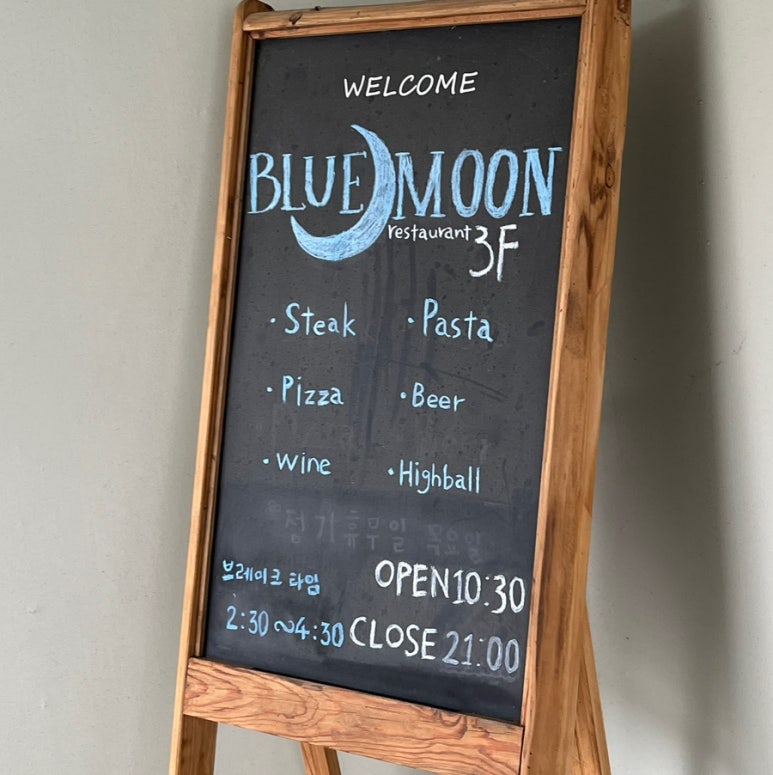 WELCOME
BLUE MOON
restaurant 3F
· Steak · Pasta
· Pizza · Beer
· Wine · Highball
정기휴무일 목요일
브레이크 타임 OPEN 10:30
2:30 ~ 4:30 CLOSE 21:00